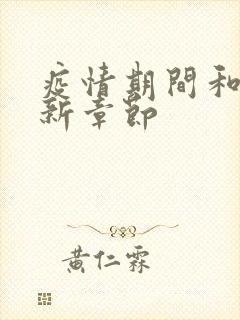 疫情期間和
新章節
黃仁霖